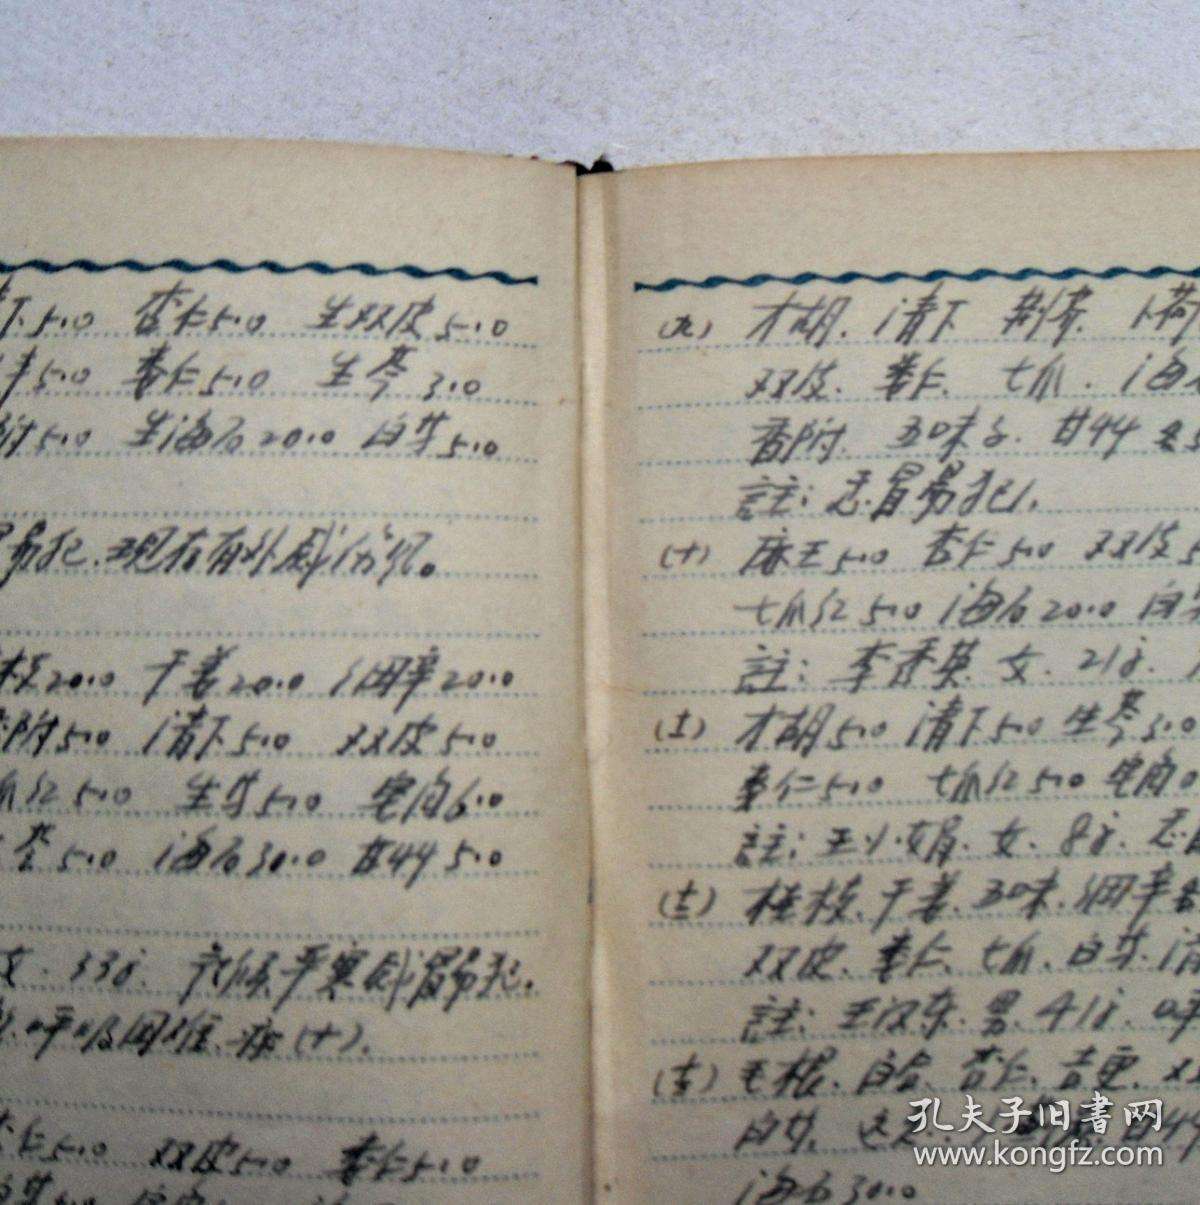 下5.0 杏仁5.0 生双皮5.0
5.0 娄仁5.0 生芩3.0
附5.0 生海石20.0 白芥5.0
易犯、现在有外感伤风。
枝20.0 干姜20.0 细辛20.0
附5.0 清下5.0 双皮5.0
爪红5.0 生芥5.0 6.0
5.0 海石30.0 甘草5.0
女、33才、气候严寒感冒易犯。
呼吸困难、痰(+)。
杏仁5.0 双皮5.0 娄仁5.0
(九) 才胡、清下 荆芥、卜荷
双皮、娄仁、七爪、海
香附、五味子、甘草
註：感冒易犯。
(十) 麻王5.0 杏仁5.0 双皮5
七爪红5.0 海石20.0 白
註：李香英、女、21才、
(十一) 才胡5.0 清下5.0 生芩3.0
娄仁5.0 七爪红5.0
註：王小娟、女、8才、感
(十二) 桂枝、干姜、五味、细辛
双皮、娄仁、七爪、白芥、清
註：王汉东、男、41才、呼
(十三) 白合、杏仁、吉更、双
海石30.0
孔夫子旧书网
www.kongfz.com